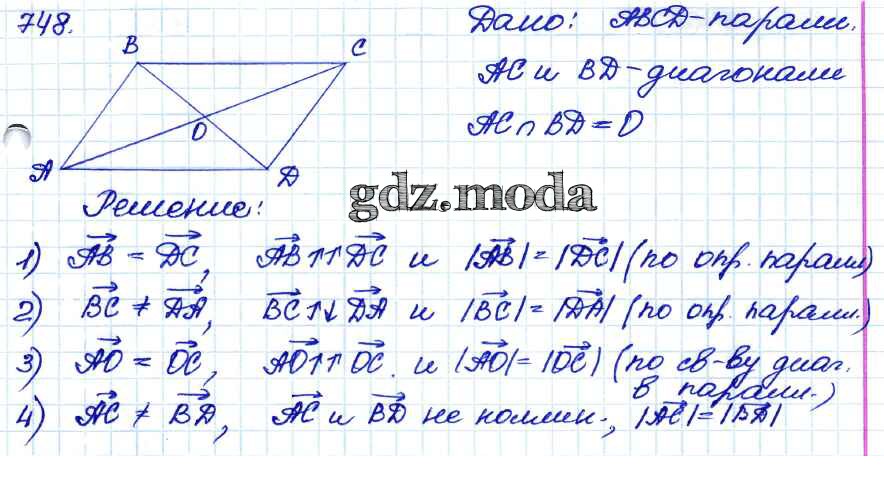 748.
Дано: ABCD-парал.
AC и BD-диагонали
AC ∩ BD = O
B
C
O
A
D
gdz.moda
Решение:
1) AB = DC, AB↑↑DC и |AB| = |DC| (по опр. парал.)
2) BC ≠ DA, BC↑↓DA и |BC| = |DA| (по опр. парал.)
3) AO = OC, AO↑↑OC. и |AO| = |OC| (по св-ву диаг.
в парал.)
4) AC ≠ BD, AC и BD не коллин., |AC| = |BD|